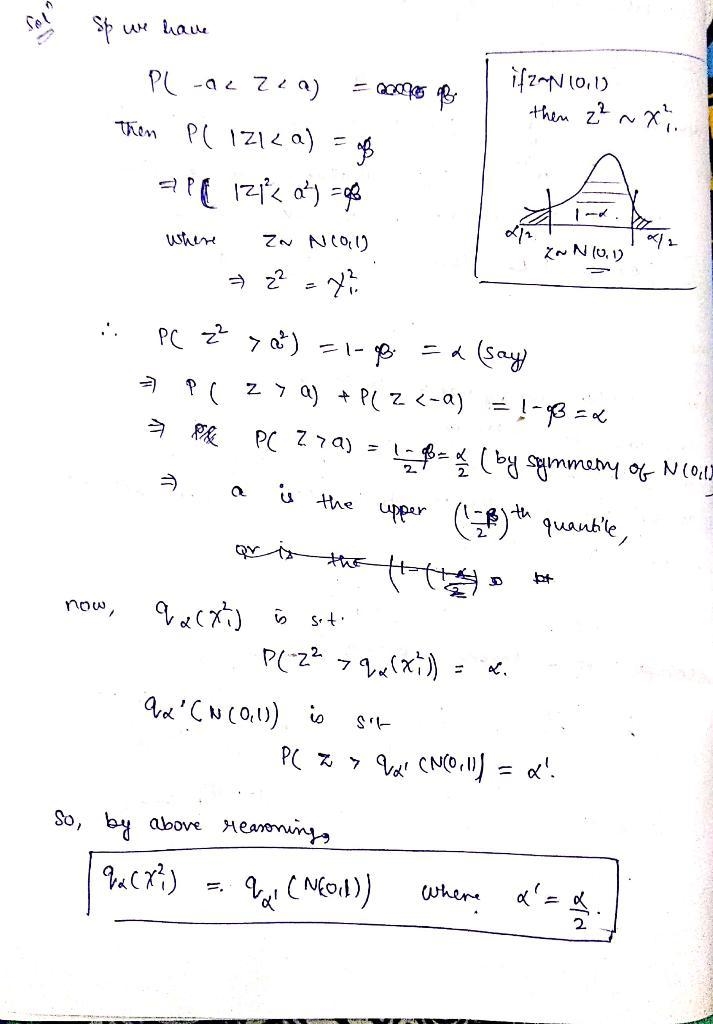 Solⁿ Sp we have
P( -a < Z < a) = β
Then P( |Z| < a) = β
⇒ P( |Z|² < a²) = β
where Z ~ N(0,1)
⇒ Z² = χ²₁.
if Z~N(0,1)
then Z² ~ χ²₁.
1-α.
α/2 α/2
Z~N(0,1)
∴ P( Z² > a²) = 1-β = α (say)
⇒ P( Z > a) + P( Z < -a) = 1-β = α
⇒ P( Z > a) = (1-β)/2 = α/2 (by symmetry of N(0,1)
⇒ a is the upper ((1-β)/2)th quantile,
or is the
now, q_α(χ²₁) is s.t.
P( Z² > q_α(χ²₁)) = α.
q_α'(N(0,1)) is s.t
P( Z > q_α' (N(0,1)) = α'.
So, by above reasoning,
q_α(χ²₁) = q_α' (N(0,1)) where α' = α/2.